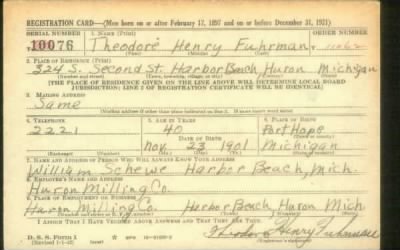 REGISTRATION CARD—(Men born on or after February 17, 1897 and on or before December 31, 1921)
SERIAL NUMBER 1. NAME (Print) ORDER NUMBER
10076 Theodore Henry Fuhrman 11062
2. PLACE OF RESIDENCE (Print)
324 S. Second St. Harbor Beach Huron Michigan
(Number and street) (Town, township, village, or city) (County) (State)
[THE PLACE OF RESIDENCE GIVEN ON THE LINE ABOVE WILL DETERMINE LOCAL BOARD
JURISDICTION; LINE 2 OF REGISTRATION CERTIFICATE WILL BE IDENTICAL]
3. MAILING ADDRESS
Same
[Mailing address if other than place indicated on line 2. If same insert word same]
4. TELEPHONE 5. AGE IN YEARS 6. PLACE OF BIRTH
2221 40 Port Hope
DATE OF BIRTH
Nov. 23 1901 Michigan
7. NAME AND ADDRESS OF PERSON WHO WILL ALWAYS KNOW YOUR ADDRESS
William Schewe Harbor Beach, Mich.
8. EMPLOYER'S NAME AND ADDRESS
Huron Milling Co.
9. PLACE OF EMPLOYMENT OR BUSINESS
Huron Milling Co. Harbor Beach, Huron Mich
I AFFIRM THAT I HAVE VERIFIED ABOVE ANSWERS AND THAT THEY ARE TRUE.
D. S. S. Form 1
(Revised 1-1-42) (over)
Theodore Henry Fuhrman